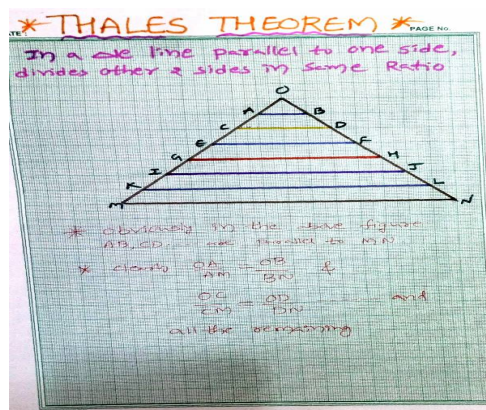 * THALES THEOREM *
PAGE No.
In a △le line parallel to one side,
divides other 2 sides in same Ratio
O
A B
C D
E F
G H
I J
K L
M N
* obviously in the above figure
AB, CD... are parallel to MN
* clearly OA/AM = OB/BN &
OC/CM = OD/DN ........ and
all the remaining